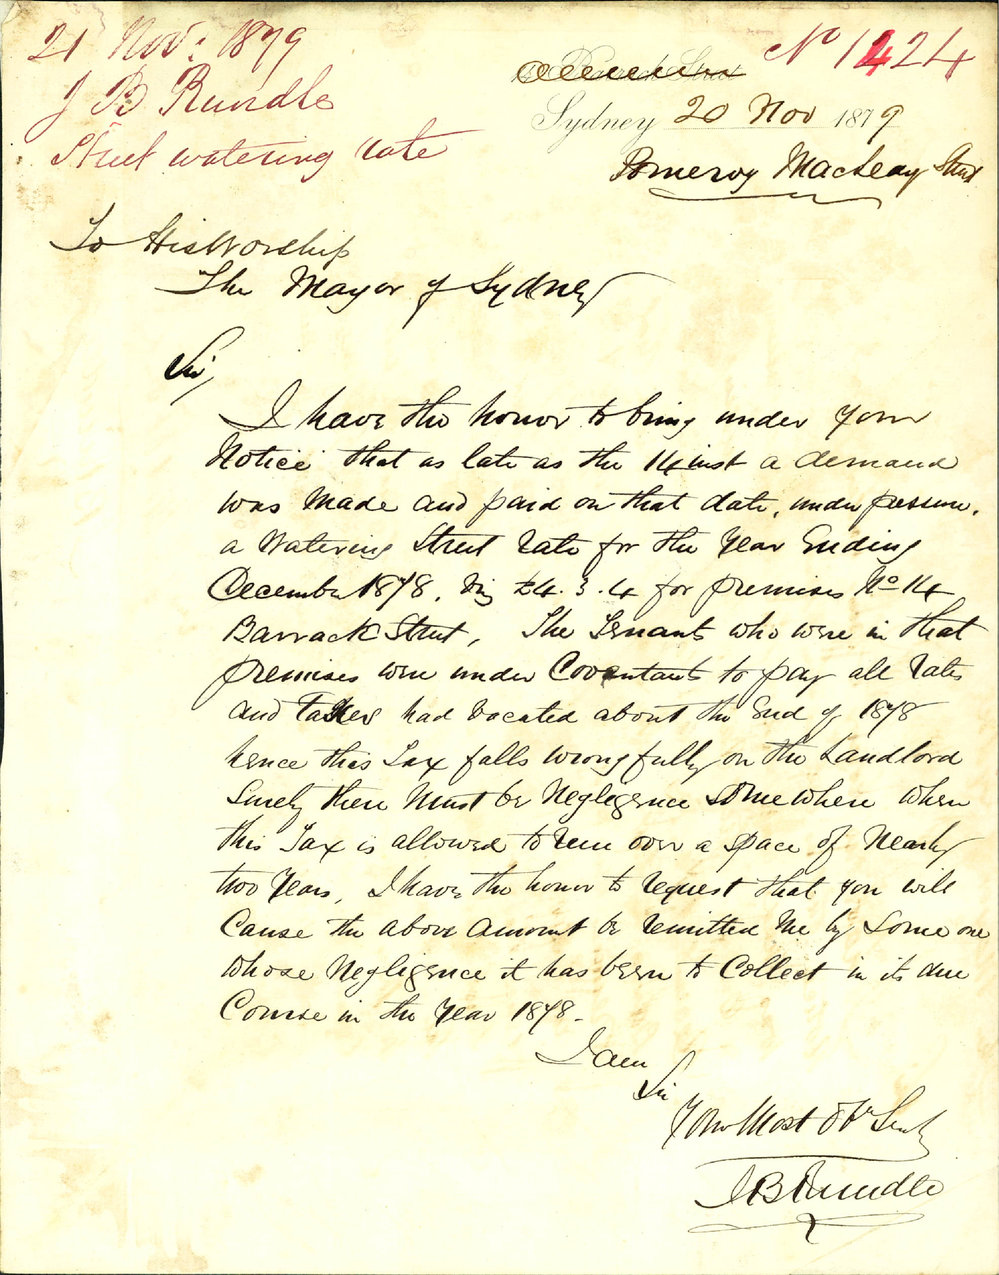 21 Nov: 1879
J B Rundle
Street watering rate
No 1424
Sydney 20 Nov 1879
Pomeroy Macleay Street
To His Worship
The Mayor of Sydney
Sir,
I have the honor to bring under your
Notice that as late as the 14 inst a demand
was made and paid on that date, under pressure,
a Watering Street rate for the Year Ending
December 1878, viz £4.3.4 for premises No 14
Barrack Street, The Tenants who were in that
premises were under Coventants to pay all rates
and taxes had vacated about the End of 1878
hence this Tax falls wrongfully on the Landlord
Surely there must be Negligence somewhere when
this Tax is allowed to run over a space of Nearly
two Years, I have the honor to request that you will
Cause the above amount be remitted me by some one
whose Negligence it has been to Collect in its due
Course in the Year 1878.
I am
Sir
Your Most Obt Servt
J B Rundle